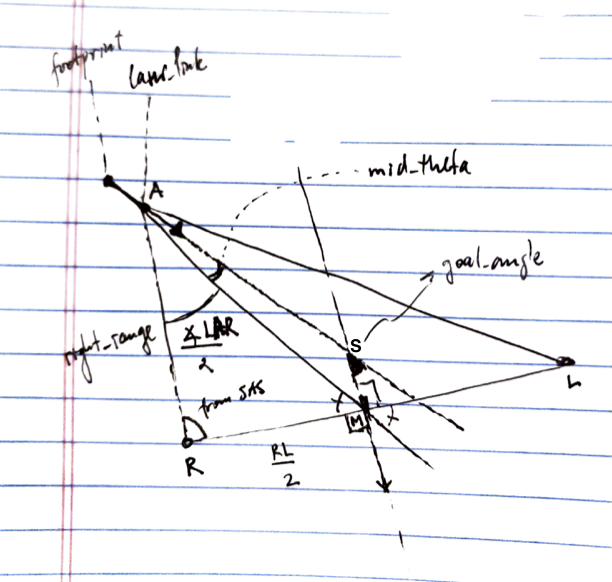 footprint
laser_link
A
mid_theta
goal_angle
S
right_range
∡LAR
2
L
from SAS
M
R
RL
2